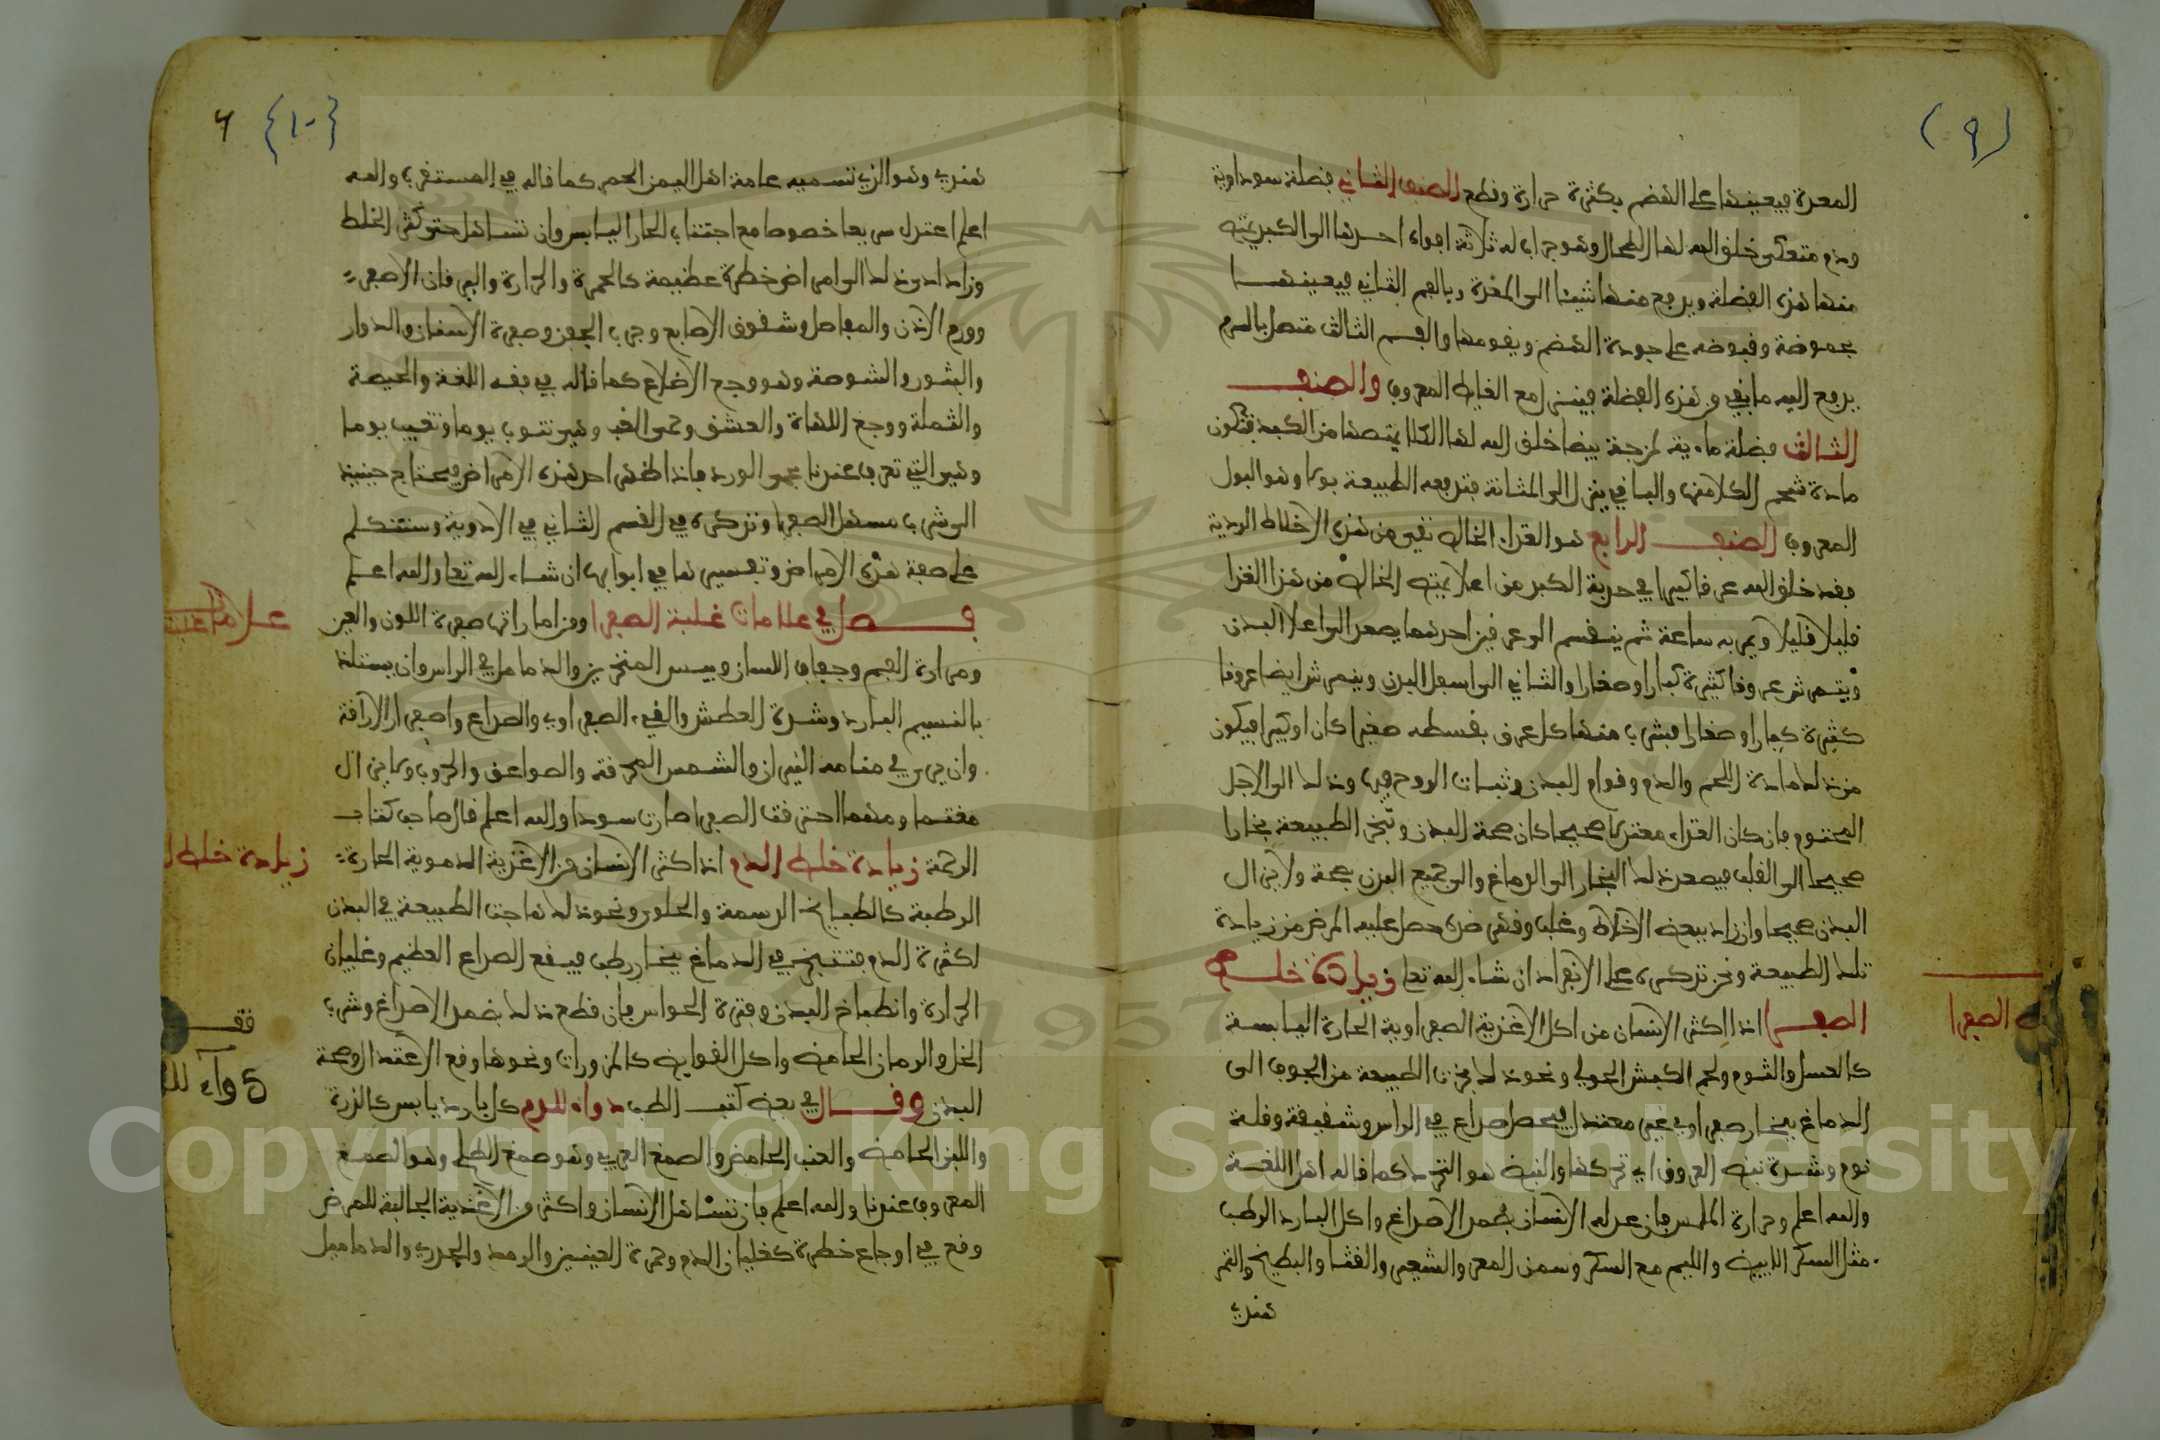 (٩)
المعدة فيعينها على الهضم بكثرة حرارة وقطع الصنف الثاني فضلة سوداوية
ودم متعكر خلق الله لها الطحال وهو جراب له ثلاثة افواه احدها الى الكبد يمتص
منها هذه الفضلة ويدفع منها شيئا الى المعدة بالفم الثاني فيعينها
بحموضة وقبوضه على جودة الهضم ويقومها والفم الثالث متصل بالدم
يدفع اليه ما بقي من هذه الفضلة فينزل مع الغايط المعروف والصنف
الثالث فضلة مائية لزجة بيضا خلق الله لها الكلا يمتصها من الكبد فتكون
مادة شحم الكلا منها والباقي ينزل الى المثانة فتدفعه الطبيعة بولا وهو البول
المعروف الصنف الرابع هو الغذاء الخالص نقي من هذه الاخلاط الردية
فقد خلق الله عرقا كبيرا في حدبة الكبد من اعلا يمتص الخالص من هذا الغذا
قليلا قليلا ويمر به ساعة ثم ينقسم الى عرقين احدهما يصعد الى اعلا البدن
ويتمشى عروقا كثيرة كبارا وصغارا والثاني الى اسفل البدن ويتمشى ايضا عروقا
كثيرة كبارا وصغارا فيشرب منها كل عرق بقسطه صغيرا كان او كبيرا فيكون
من ذلك مادة اللحم والدم وقوام البدن وثبات الروح فيه وذلك الى الاجل
المحتوم فان كان الغذاء معتدلا صحيحا كان صحة البدن وتبخر الطبيعة بخارا
صحيحا الى القلب فيصعد ذلك البخار الى الدماغ والى جميع البدن بصحة ولا يزال
البدن صحيحا وان زاد بعض الاخلاط وغلب وقهر ضده حصل عليه المرض من زيادة
تلك الطبيعة ونحن نذكره على الانفراد ان شاء الله تعلى زيادة خلط
الصفرا اذا اكثر الانسان من اكل الاغذية الصفراوية الحارة اليابسة
كالعسل والثوم ولحم الكبش الحولي ونحو ذلك بخرت الطبيعة من الجوف الى
الدماغ بخار صفراوي غير معتدل فيحصل صداع في الراس وشقيقة وقلة
نوم وشدة نبض العروق اي تحركها والنبض هو التحرك كما قاله اهل اللغة
والله اعلم وحرارة الملمس فان عدله الانسان بضد الاصداغ واكل البارد الرطب
مثل السكر الابيض والليم مع السكر وسمن المعز والشعير والقثا والبطيخ والتمر
هندي
ط الصفرا
{١٠} ٦
هندي وهو الذي تسميه عامة اهل اليمن الحمر كما قاله في المستغرب والله
اعلم اعتدل سريعا خصوصا مع اجتناب الحار اليابس وان تساهل حتى كثر الخلط
وزاد ادى ذلك الى امراض خطرة عظيمة كالحمرة والحرارة واليرقان الاصفر
وورم الاذن والمفاصل وشقوق الاصابع وجرب الجفن وصفرة الاسنان والدوار
والبثور والشوصة وهو وجع الاضلاع كما قاله في فقه اللغة والحيصة
والثملة ووجع اللهاة والعشق وحمى الغب وهي تنوب يوما وتغيب يوما
وهي التي تعرف عندنا بحمى الورد فاذا ظهر احد هذه الامراض فيحتاج حينئذ
الى شرب مسهل الصفرا ونذكره في القسم الثاني في الادوية وسنتكلم
على صفة هذه الامراض وتفسيرها في ابوابها ان شاء الله تعلى والله اعلم
فصل في علامات غلبة الصفرا ومن اماراتها صفرة اللون والعين
ومرارة الفم وجفاف اللسان ويبس المنخرين والدماميل في الراس وان يستلذ
بالنسيم البارد وشدة العطش والقيء الصفراوي والصداع واصفرار الاراقة
وان يرى في منامه النيران والشمس المحرقة والصواعق والحروب ولا يزال
مغتما ومهموما حتى قت الصفرا صارت سودا والله اعلم قال صاحب كتاب
الرحمة زيادة خلط الدم اذا اكثر الانسان من الاغذية الدموية الحارة
الرطبة كالطبايخ الدسمة والحلوى ونحو ذلك هاجت الطبيعة في البدن
لكثرة الدم فتتبخر في الدماغ بخار رطب فيقع الصداع العظيم وغليان
الحرارة وانطباخ البدن وفترة الحواس فان قطع ذلك بضمد الاصداغ وشرب
الخل والرمان الحامض واكل القوابض كالمزورات ونحوها وقع الاعتدال وصحة
البدن وقال في بعض كتب الطب دواء للدم كل بارد يابس كالذرة
واللبن الحامض والعنب الحامض والصمغ العربي وهو صمغ الطلح وهو الصمغ
المعروف عندنا والله اعلم فان تساهل الانسان واكثر من الاغذية الجالبة للمرض
وقع في اوجاع خطرة كغليان الدم وحمرة العينين والرمد والجدري والدماميل
علامات غلبة
زيادة خلط ا
قف
دواء لل
1957
Copyright © King Saud University